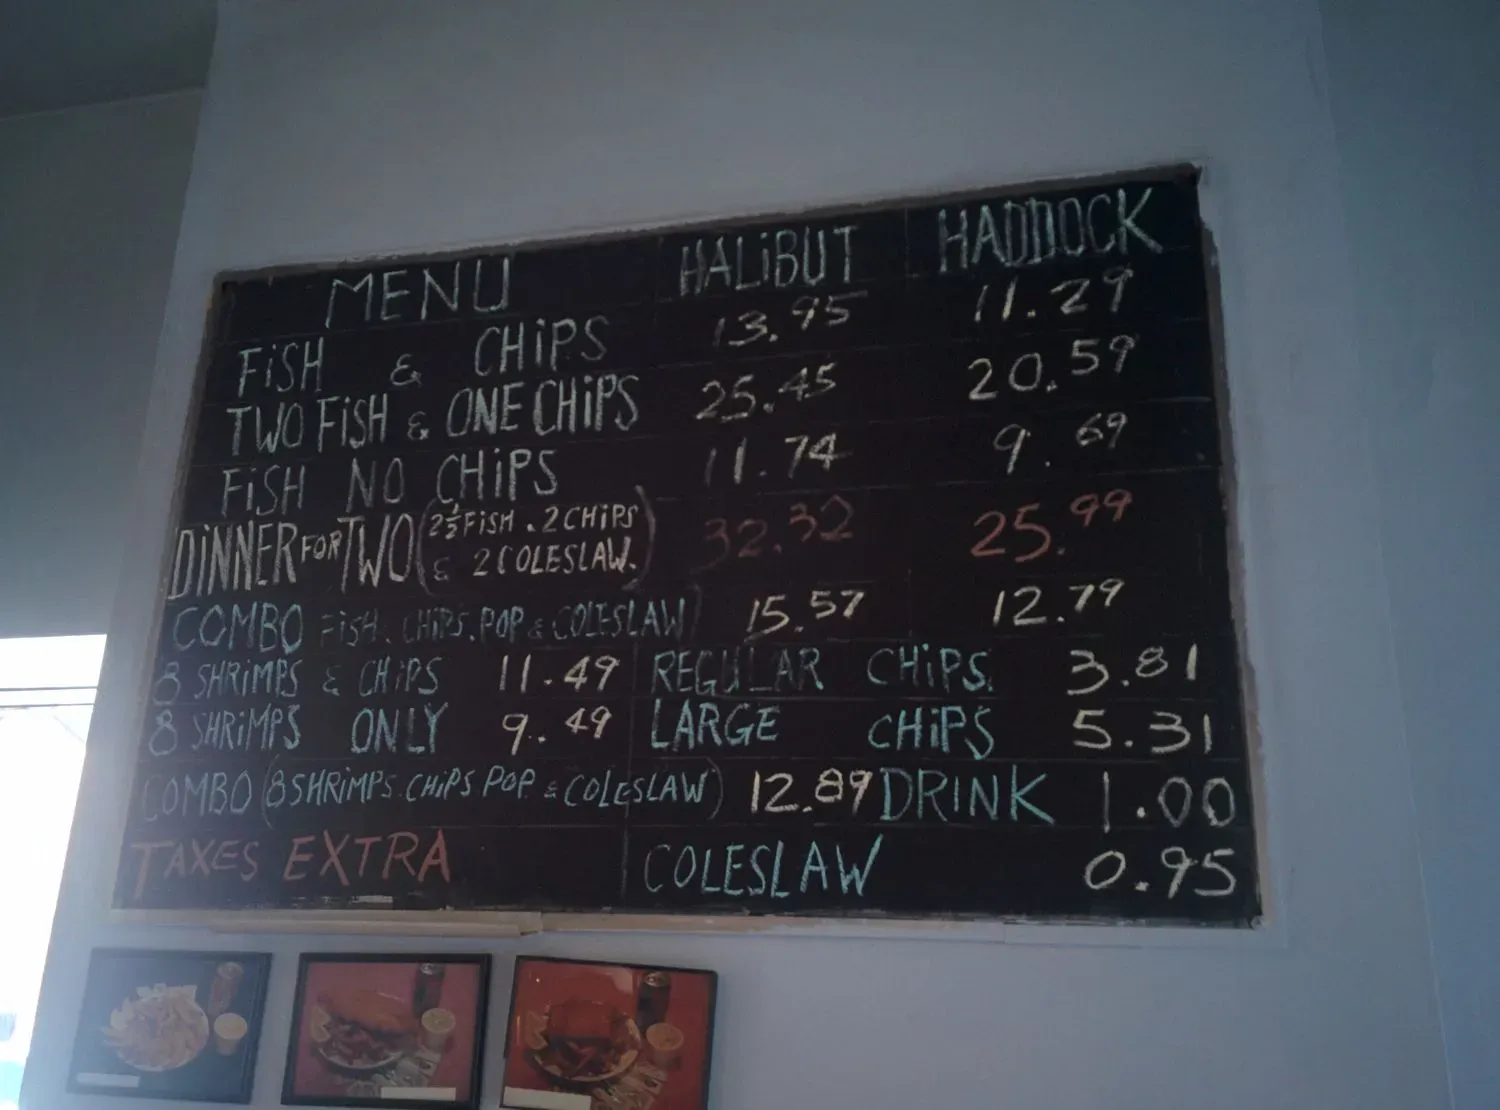 MENU HALIBUT HADDOCK
FISH & CHIPS 13.95 11.29
TWO FISH & ONE CHIPS 25.45 20.59
FISH NO CHIPS 11.74 9.69
DINNER FOR TWO (2½ FISH. 2 CHIPS & 2 COLESLAW.) 32.32 25.99
COMBO FISH. CHIPS. POP & COLESLAW) 15.57 12.79
8 SHRIMPS & CHIPS 11.49 REGULAR CHIPS. 3.81
8 SHRIMPS ONLY 9.49 LARGE CHIPS 5.31
COMBO (8 SHRIMPS. CHIPS POP & COLESLAW) 12.89 DRINK 1.00
TAXES EXTRA COLESLAW 0.95